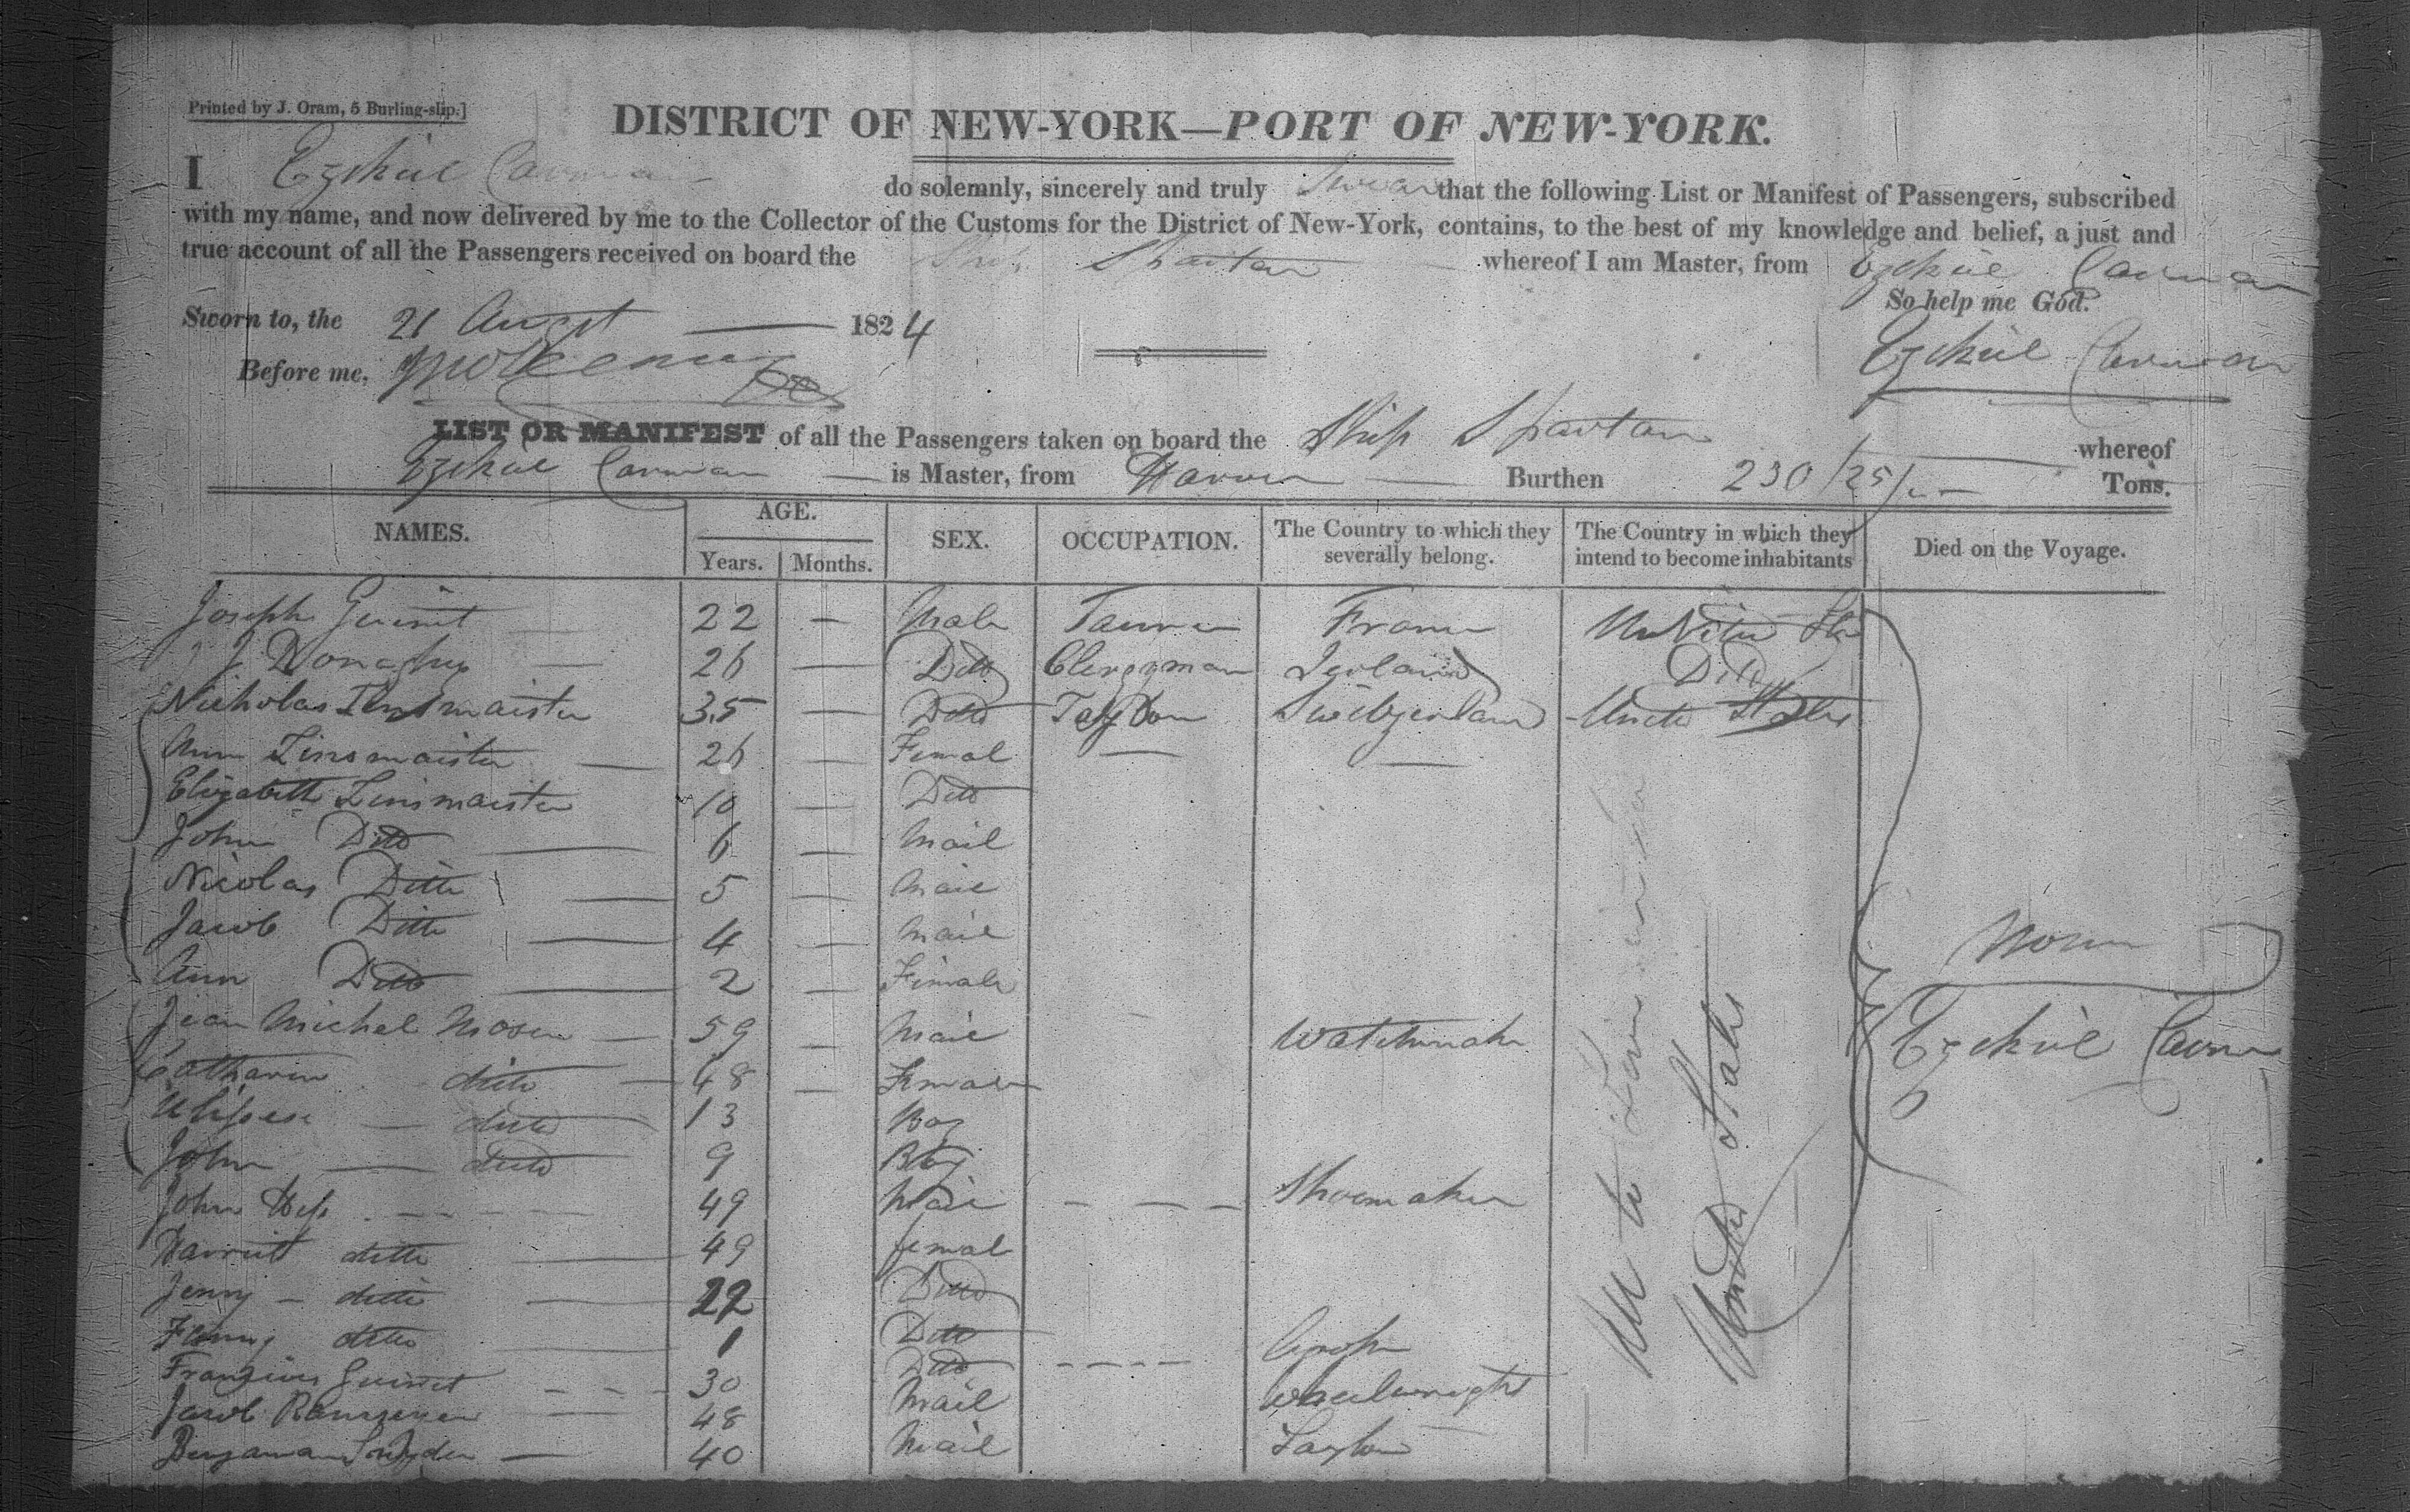 Printed by J. Oram, 5 Burling-slip.]
DISTRICT OF NEW-YORK—PORT OF NEW-YORK.
I Ezekiel Carman do solemnly, sincerely and truly Swear that the following List or Manifest of Passengers, subscribed
with my name, and now delivered by me to the Collector of the Customs for the District of New-York, contains, to the best of my knowledge and belief, a just and
true account of all the Passengers received on board the Ship Spartan whereof I am Master, from Ezekiel Carman
So help me God.
Sworn to, the 21 Augst 1824
Ezekiel Carman
Before me,
LIST OR MANIFEST of all the Passengers taken on board the Ship Spartan whereof
Ezekiel Carman is Master, from Havre Burthen 230/25/ Tons.
NAMES. AGE. Years. Months. SEX. OCCUPATION. The Country to which they severally belong. The Country in which they intend to become inhabitants Died on the Voyage.
Joseph Guinet 22 — Male France United Sta
J Donaghue 26 — Ditto Clergyman Ierland Ditto
Nicholas Linsmaister 35 — Ditto Switzerland United States
Ann Linsmaister 26 — Femal — —
Elizabeth Linsmaister 10 — Ditto
John Ditto 6 — Mail
Nicolas Ditto 5 — Mail
Jacob Ditto 4 — Mail
Ann Ditto 2 — Female
Jean Michel Moser 59 — Mail Watchmaker
Catharin ditto 48 — Female
Ulissese ditto 13 Boy
John ditto 9 Boy
John Hess 49 Mail Shoemaker
Harriet ditto 49 femal
Jenny ditto 22 Ditto
Fanny ditto 1 Ditto
Guinet 30 Ditto
Jacob 48 Mail wheelwright
Benjaman Snyder 40 Mail Taylor
United States
None
Ezekiel Carman